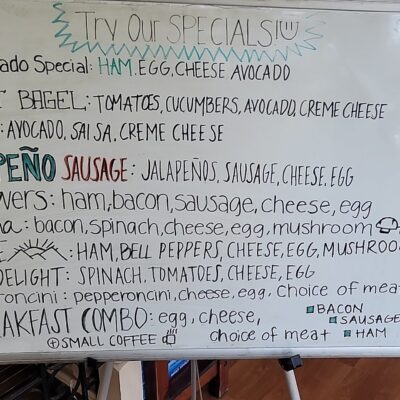 Try Our SPECIALS!
ado Special: HAM, EGG, CHEESE AVOCADO
BAGEL: TOMATOES, CUCUMBERS, AVOCADO, CREME CHEESE
: AVOCADO, SALSA, CREME CHEESE
PEÑO SAUSAGE: JALAPEÑOS, SAUSAGE, CHEESE, EGG
wers: ham, bacon, sausage, cheese, egg
a: bacon, spinach, cheese, egg, mushroom
E: HAM, BELL PEPPERS, CHEESE, EGG, MUSHROO
DELIGHT: SPINACH, TOMATOES, CHEESE, EGG
roncini: pepperoncini, cheese, egg, Choice of meat
AKFAST COMBO: egg, cheese, choice of meat
+ SMALL COFFEE
BACON
SAUSAGE
HAM